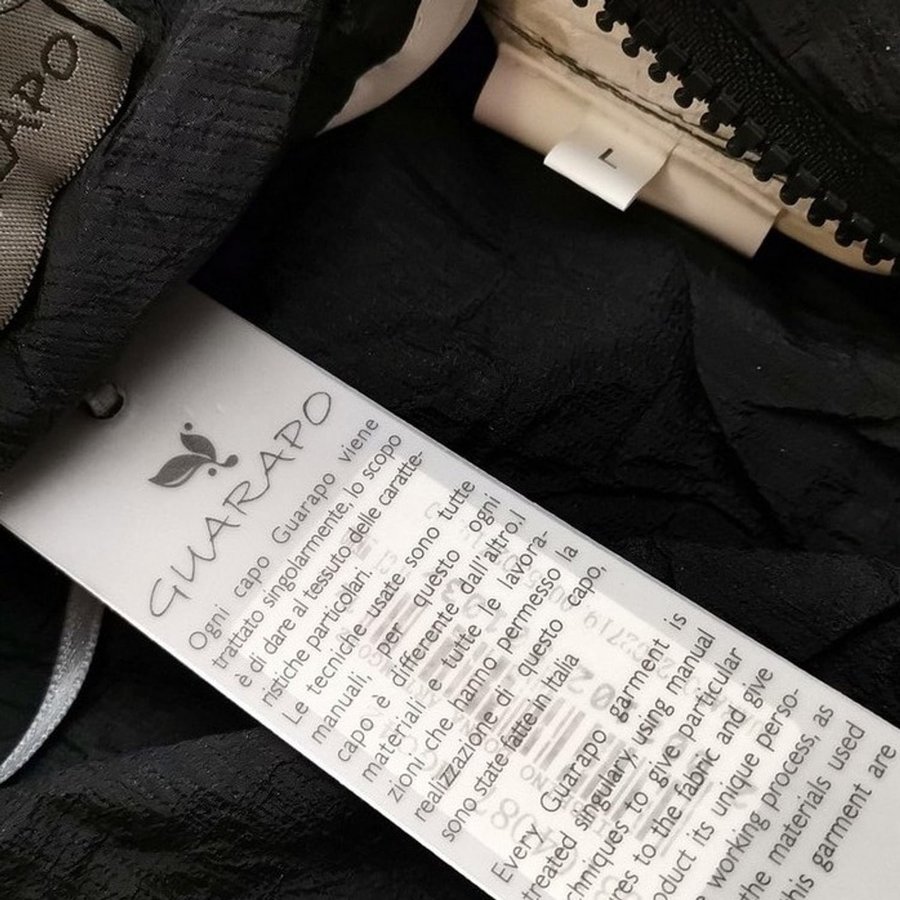 L
GUARAPO
Ogni capo Guarapo viene
trattato singolarmente, lo scopo
è di dare al tessuto delle caratte-
ristiche particolari.
Le tecniche usate, sono tutte
manuali, per questo ogni
capo è differente dall'altro,i
materiali e tutte le lavora-
zioni che hanno permesso la
realizzazione di questo capo,
sono state fatte in Italia
Every Guarapo garment is
treated singulary, using manual
to give particular
to the fabric and give
its unique perso-
working process, as
the materials used
garment are